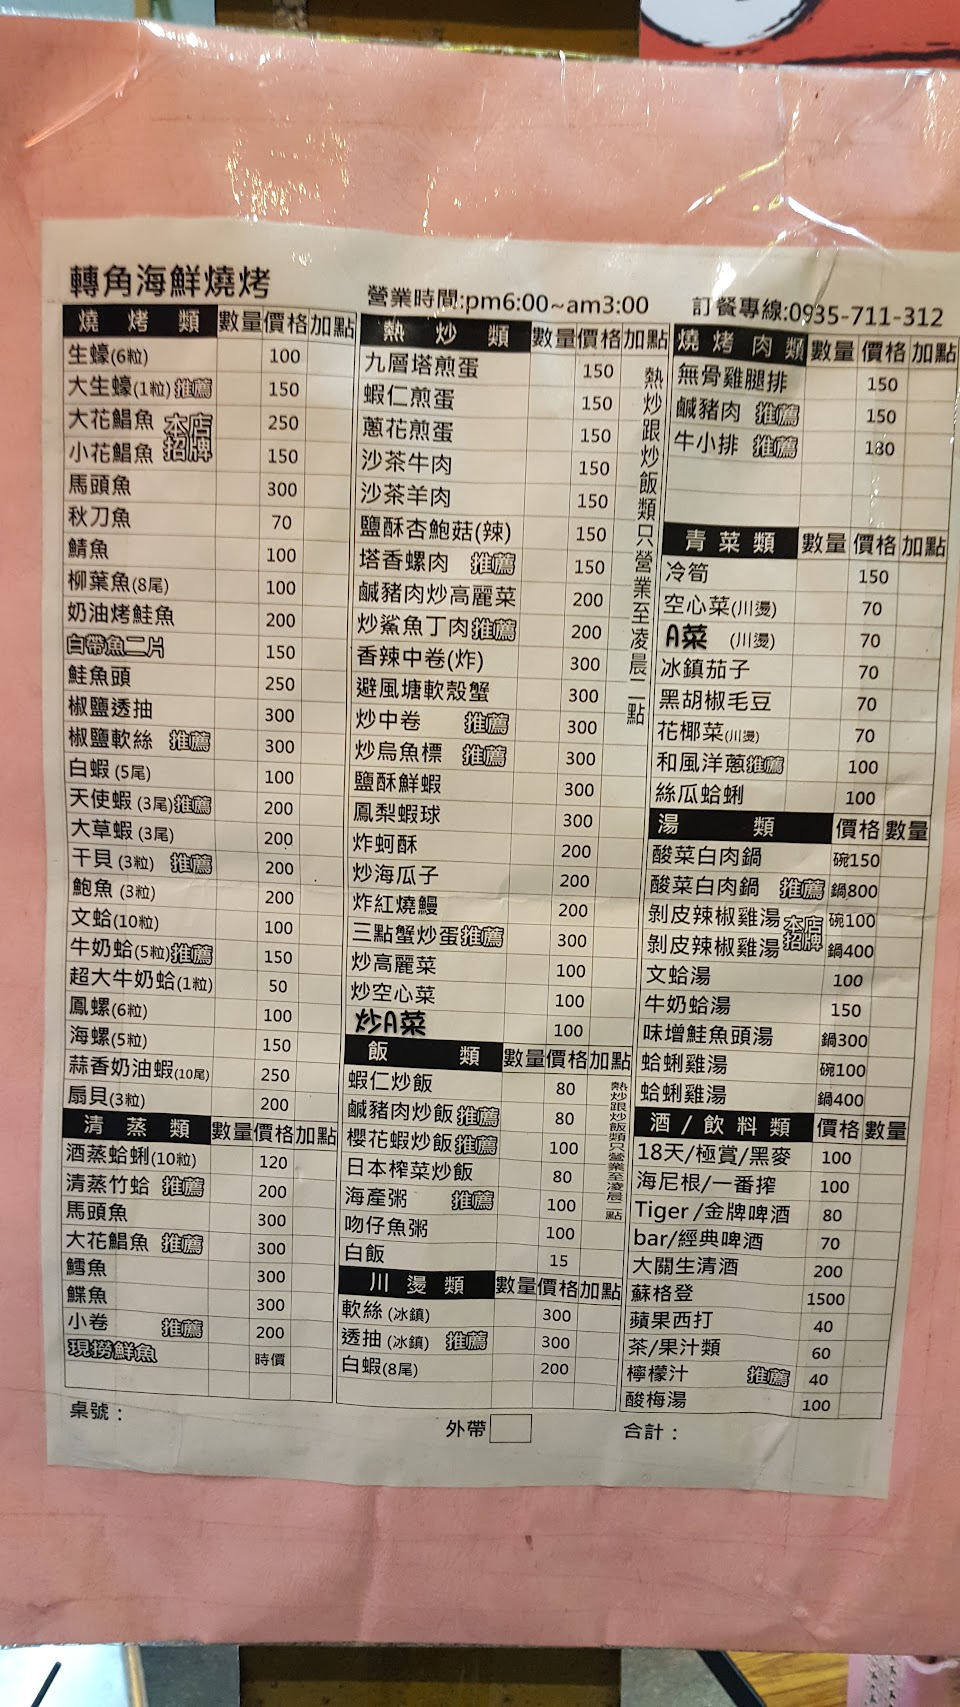 轉角海鮮燒烤
營業時間:pm6:00~am3:00
訂餐專線:0935-711-312
燒烤類 數量 價格 加點
生蠔(6粒) 100
大生蠔(1粒)推薦 150
大花鯧魚 本店招牌 250
小花鯧魚 150
馬頭魚 300
秋刀魚 70
鯖魚 100
柳葉魚(8尾) 100
奶油烤鮭魚 200
白帶魚二片 150
鮭魚頭 250
椒鹽透抽 300
椒鹽軟絲 推薦 300
白蝦(5尾) 100
天使蝦(3尾)推薦 200
大草蝦(3尾) 200
干貝(3粒) 推薦 200
鮑魚(3粒) 200
文蛤(10粒) 100
牛奶蛤(5粒)推薦 150
超大牛奶蛤(1粒) 50
鳳螺(6粒) 100
海螺(5粒) 150
蒜香奶油蝦(10尾) 250
扇貝(3粒) 200
清蒸類 數量 價格 加點
酒蒸蛤蜊(10粒) 120
清蒸竹蛤 推薦 200
馬頭魚 300
大花鯧魚 推薦 300
鱈魚 300
鰈魚 300
小卷 推薦 200
現撈鮮魚 時價
桌號：
熱炒類 數量 價格 加點
九層塔煎蛋 150
蝦仁煎蛋 150
蔥花煎蛋 150
沙茶牛肉 150
沙茶羊肉 150
鹽酥杏鮑菇(辣) 150
塔香螺肉 推薦 150
鹹豬肉炒高麗菜 200
炒鯊魚丁肉推薦 200
香辣中卷(炸) 300
避風塘軟殼蟹 300
炒中卷 推薦 300
炒烏魚標 推薦 300
鹽酥鮮蝦 300
鳳梨蝦球 300
炸蚵酥 200
炒海瓜子 200
炸紅燒鰻 200
三點蟹炒蛋推薦 300
炒高麗菜 100
炒空心菜 100
炒A菜 100
熱炒跟炒飯類只營業至凌晨二點
飯類 數量 價格 加點
蝦仁炒飯 80
鹹豬肉炒飯推薦 80
櫻花蝦炒飯推薦 100
日本榨菜炒飯 80
海產粥 推薦 100
吻仔魚粥 100
白飯 15
熱炒跟炒飯類只營業至凌晨二點
川燙類 數量 價格 加點
軟絲(冰鎮) 300
透抽(冰鎮) 推薦 300
白蝦(8尾) 200
外帶
燒烤肉類 數量 價格 加點
無骨雞腿排 150
鹹豬肉 推薦 150
牛小排 推薦 180
青菜類 數量 價格 加點
冷筍 150
空心菜(川燙) 70
A菜 (川燙) 70
冰鎮茄子 70
黑胡椒毛豆 70
花椰菜(川燙) 70
和風洋蔥推薦 100
絲瓜蛤蜊 100
湯類 價格 數量
酸菜白肉鍋 碗150
酸菜白肉鍋 推薦 鍋800
剝皮辣椒雞湯 本店招牌 碗100
剝皮辣椒雞湯 鍋400
文蛤湯 100
牛奶蛤湯 150
味增鮭魚頭湯 鍋300
蛤蜊雞湯 碗100
蛤蜊雞湯 鍋400
酒/飲料類 價格 數量
18天/極賞/黑麥 100
海尼根/一番搾 100
Tiger/金牌啤酒 80
bar/經典啤酒 70
大關生清酒 200
蘇格登 1500
蘋果西打 40
茶/果汁類 60
檸檬汁 推薦 40
酸梅湯 100
合計：